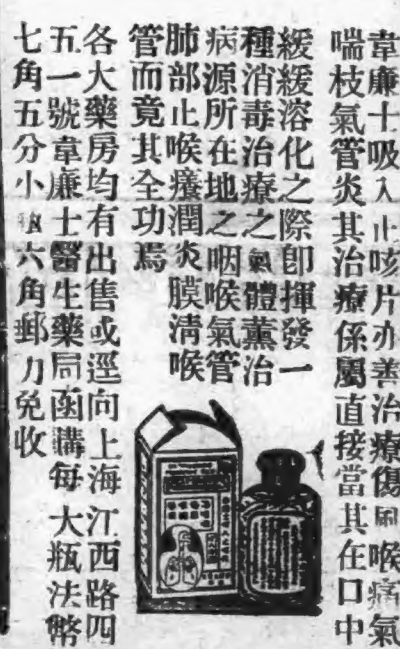 韋廉士吸入止咳片亦善治療傷風喉痛氣
喘枝氣管炎其治療係屬直接當其在口中
緩緩溶化之際卽揮發一
種消毒治療之氣體薰治
病源所在地之咽喉氣管
肺部止喉癢潤炎膜淸喉
管而竟其全功焉
各大藥房均有出售或逕向上海江西路四
五一號韋廉士醫生藥局函購每大瓶法幣
七角五分小瓶六角郵力免收